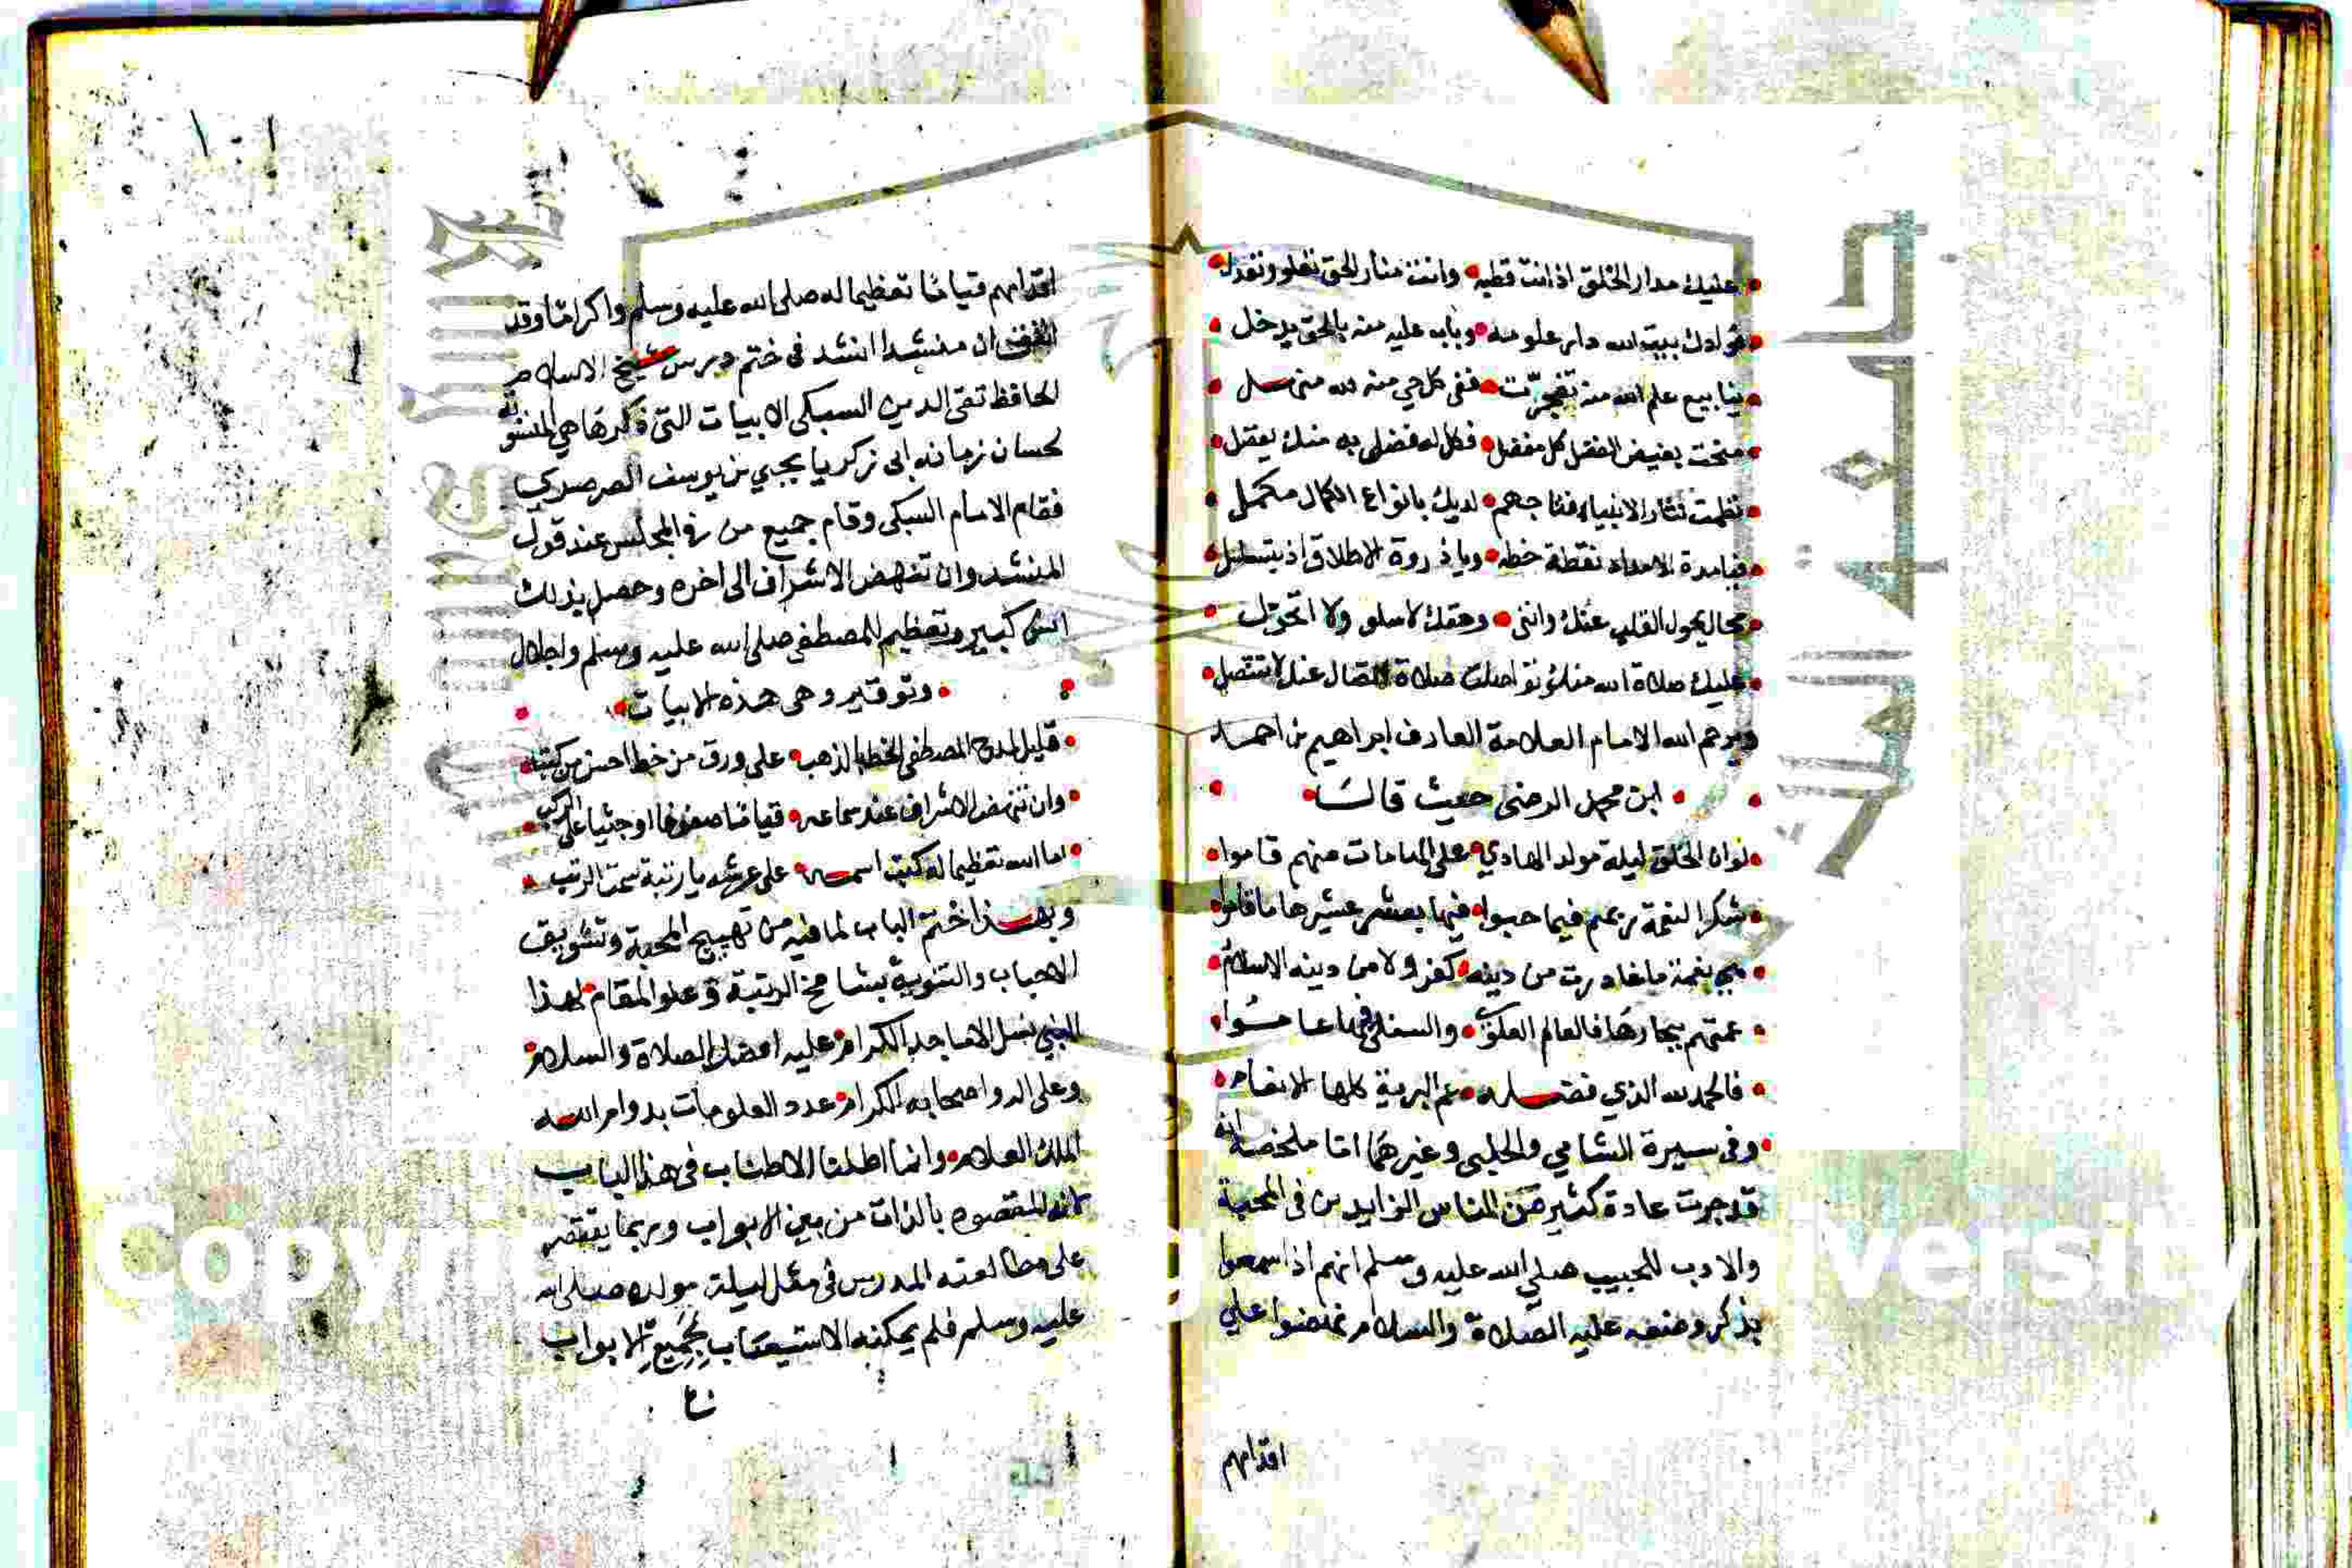 عليك مدار الخلق اذ انت قطبه وانت منار الحق تعلو وتعدل
فؤادك بيت الله دار علومه وباب عليه منه بالحق يدخل
ينابيع علم الله منه تفجرت ففي كل حي منه لله منهل
منحت بفيض الفضل كل مفضل فكل له فضل به منك يفضل
نظمت نثار الانبياء فتاجهم لديك بانواع الكمال مكمل
فيا مدة الامداد نقطة خطه ويا ذروة الاطلاق اذ يتسلسل
محال يحول القلب عنك وانني وحقك لا اسلو ولا اتحول
عليك صلاة الله منه تواصلت صلاة اتصال عنك لا تتنصل
ويرحم الله الامام العلامة العارف ابراهيم بن احمد
ابن محمد الرضى حيث قال
لو ان الخلق ليلة مولد الهادي على الهامات منهم قاموا
شكرا لنعمة ربهم فيما حبوا فيها بعشر عشيرها ما قاموا
هي نعمة ما غادرت من دينه كفر ولا من دينه الاسلام
عمتهم بحارها فالعالم العلوي والسفلي فيها عاموا
فالحمد لله الذي فضله عم البرية كلها الانعام
وفي سيرة الشامي والحلبي وغيرهما اما ملخصه انه
قد جرت عادة كثير من الناس الزايدين في المحبة
والادب للحبيب صلى الله عليه وسلم انهم اذا سمعوا
بذكر وضعه عليه الصلاة والسلام نهضوا على
اقدامهم
١٠١
اقدامهم قياما تعظيما له صلى الله عليه وسلم واكراما وقد
اتفق ان منشدا انشد في ختم درس شيخ الاسلام
الحافظ تقى الدين السبكى الابيات التى ذكرها هي المنسوبة
لحسان زمانه ابى زكريا يحيي بن يوسف الصرصري
فقام الامام السبكى وقام جميع من في المجلس عند قول
المنشد وان تنهض الاشراف الى اخره وحصل بذلك
انس كبير وتعظيم للمصطفى صلى الله عليه وسلم واجلال
وتوقير وهى هذه الابيات
قليل لمدح المصطفى الخط بالذهب على ورق من خط احسن من كتب
وان تنهض الاشراف عند سماعه قياما صفوفا او جثيا على الركب
اما الله تعظيما له كتب اسمه على عرشه يا رتبة سمت الرتب
وبهذا ختم الباب لما فيه من تهييج المحبة وتشويق
الاحباب والتنويه بشامخ الرتبة وعلو المقام لهذا
النبي نسل الاماجد الكرام عليه افضل الصلاة والسلام
وعلى اله واصحابه الكرام عدد المعلومات بدوام الله
الملك العلام وانما اطلنا الاطناب في هذا الباب
لانه المقصود بالذات من بين الابواب وربما يقتصر
على مطالعته المدرس في مثل ليلة مولده صلى الله
عليه وسلم فلم يمكنه الاستيعاب لجميع الابواب